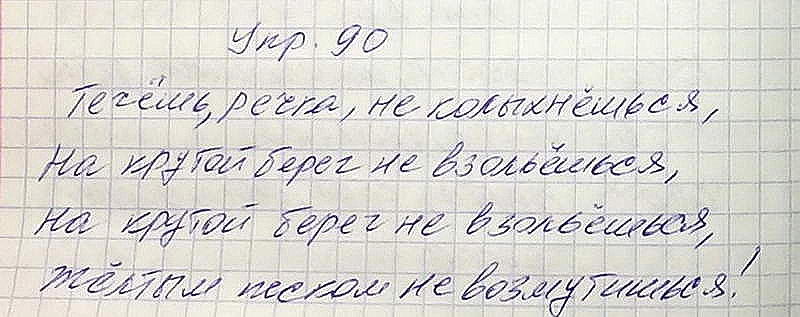 Упр. 90
Течёшь, речка, не колыхнёшься,
На крутой берег не взольёшься,
На крутой берег не взольёшься,
Жёлтым песком не возмутишься!